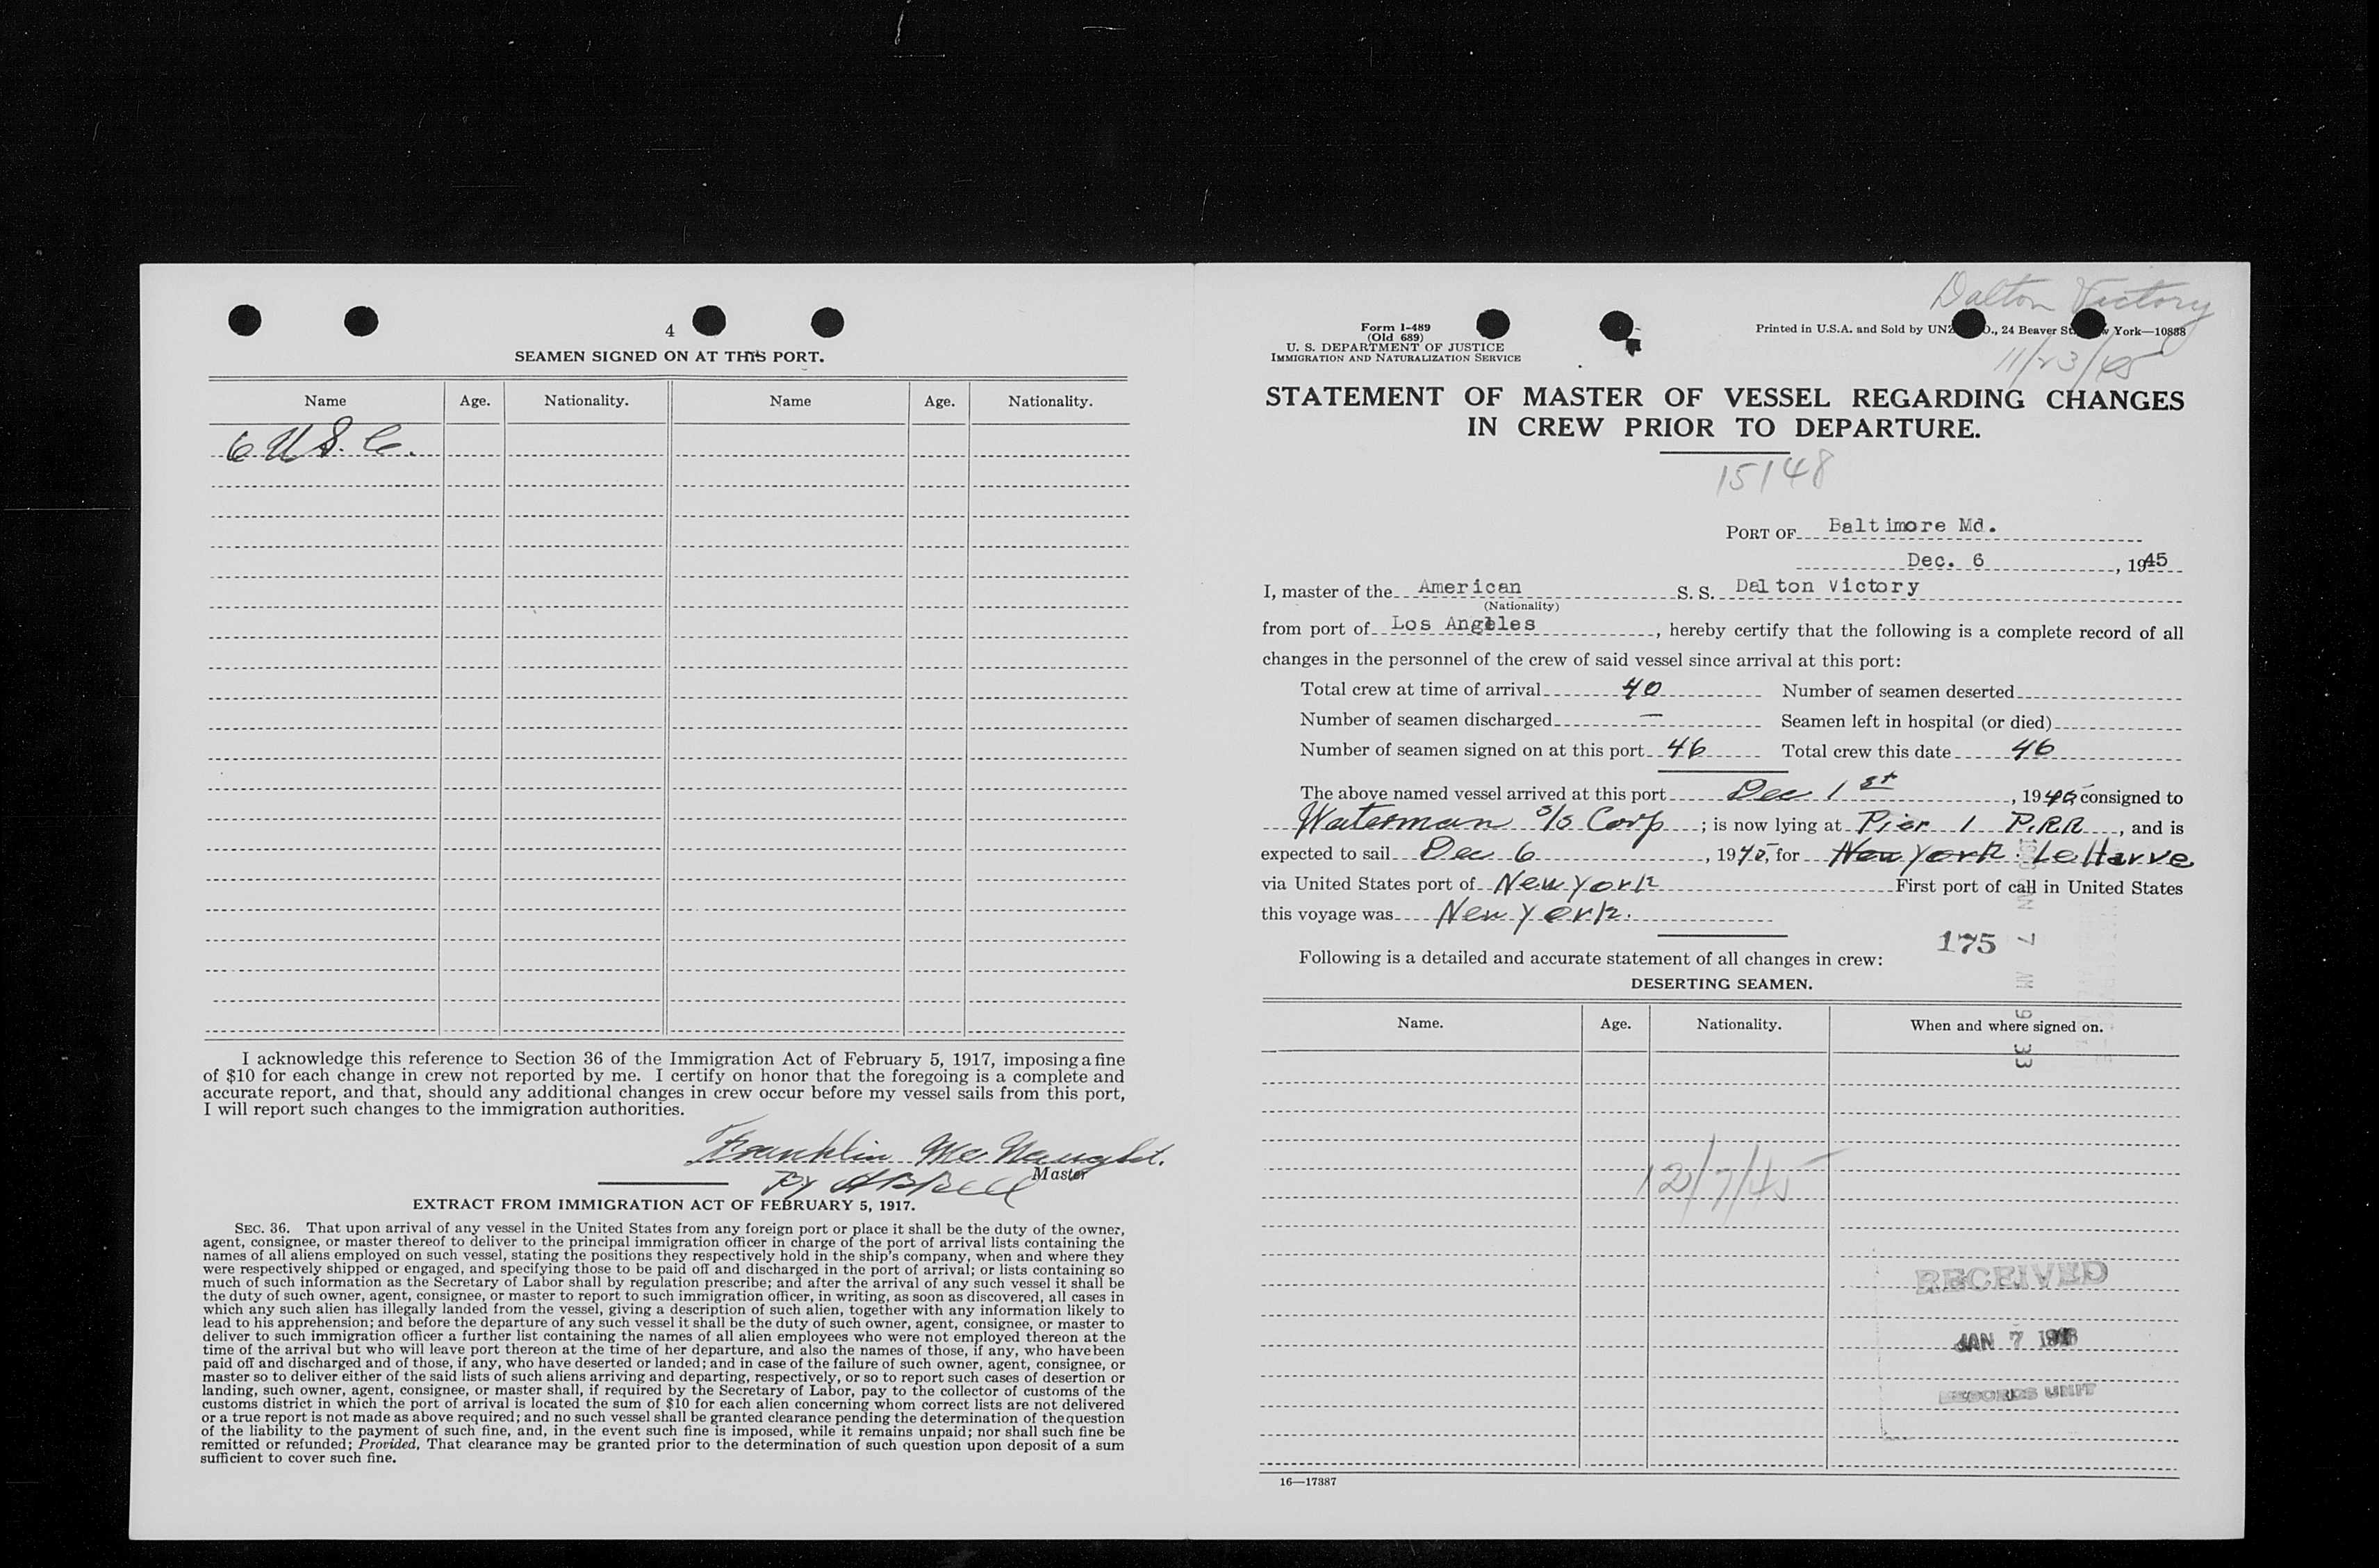 4
SEAMEN SIGNED ON AT THIS PORT.
Name Age. Nationality. Name Age. Nationality.
6 U.S.C.
I acknowledge this reference to Section 36 of the Immigration Act of February 5, 1917, imposing a fine
of $10 for each change in crew not reported by me. I certify on honor that the foregoing is a complete and
accurate report, and that, should any additional changes in crew occur before my vessel sails from this port,
I will report such changes to the immigration authorities.
Franklin McNaught.
Master
By
EXTRACT FROM IMMIGRATION ACT OF FEBRUARY 5, 1917.
SEC. 36. That upon arrival of any vessel in the United States from any foreign port or place it shall be the duty of the owner,
agent, consignee, or master thereof to deliver to the principal immigration officer in charge of the port of arrival lists containing the
names of all aliens employed on such vessel, stating the positions they respectively hold in the ship's company, when and where they
were respectively shipped or engaged, and specifying those to be paid off and discharged in the port of arrival; or lists containing so
much of such information as the Secretary of Labor shall by regulation prescribe; and after the arrival of any such vessel it shall be
the duty of such owner, agent, consignee, or master to report to such immigration officer, in writing, as soon as discovered, all cases in
which any such alien has illegally landed from the vessel, giving a description of such alien, together with any information likely to
lead to his apprehension; and before the departure of any such vessel it shall be the duty of such owner, agent, consignee, or master to
deliver to such immigration officer a further list containing the names of all alien employees who were not employed thereon at the
time of the arrival but who will leave port thereon at the time of her departure, and also the names of those, if any, who have been
paid off and discharged and of those, if any, who have deserted or landed; and in case of the failure of such owner, agent, consignee, or
master so to deliver either of the said lists of such aliens arriving and departing, respectively, or so to report such cases of desertion or
landing, such owner, agent, consignee, or master shall, if required by the Secretary of Labor, pay to the collector of customs of the
customs district in which the port of arrival is located the sum of $10 for each alien concerning whom correct lists are not delivered
or a true report is not made as above required; and no such vessel shall be granted clearance pending the determination of the question
of the liability to the payment of such fine, and, in the event such fine is imposed, while it remains unpaid; nor shall such fine be
remitted or refunded; Provided, That clearance may be granted prior to the determination of such question upon deposit of a sum
sufficient to cover such fine.
Dalton Victory
Form I-489
(Old 689)
U. S. DEPARTMENT OF JUSTICE
IMMIGRATION AND NATURALIZATION SERVICE
Printed in U.S.A. and Sold by UNZ O., 24 Beaver St. w York—10888
11/23/45
STATEMENT OF MASTER OF VESSEL REGARDING CHANGES
IN CREW PRIOR TO DEPARTURE.
15148
PORT OF Baltimore Md.
Dec. 6, 1945
I, master of the American S. S. Dalton Victory
(Nationality)
from port of Los Angeles, hereby certify that the following is a complete record of all
changes in the personnel of the crew of said vessel since arrival at this port:
Total crew at time of arrival 40 Number of seamen deserted
Number of seamen discharged — Seamen left in hospital (or died)
Number of seamen signed on at this port 46 Total crew this date 46
The above named vessel arrived at this port Dec 1st, 1945 consigned to
Waterman S/S Corp; is now lying at Pier 1 P.R.R., and is
expected to sail Dec 6, 1945, for New York. Le Harve
via United States port of New York First port of call in United States
this voyage was New York.
175
Following is a detailed and accurate statement of all changes in crew:
7 AM 9 33
DESERTING SEAMEN.
Name. Age. Nationality. When and where signed on.
12/7/45
RECEIVED
JAN 7
RECORDS UNIT
16—17387